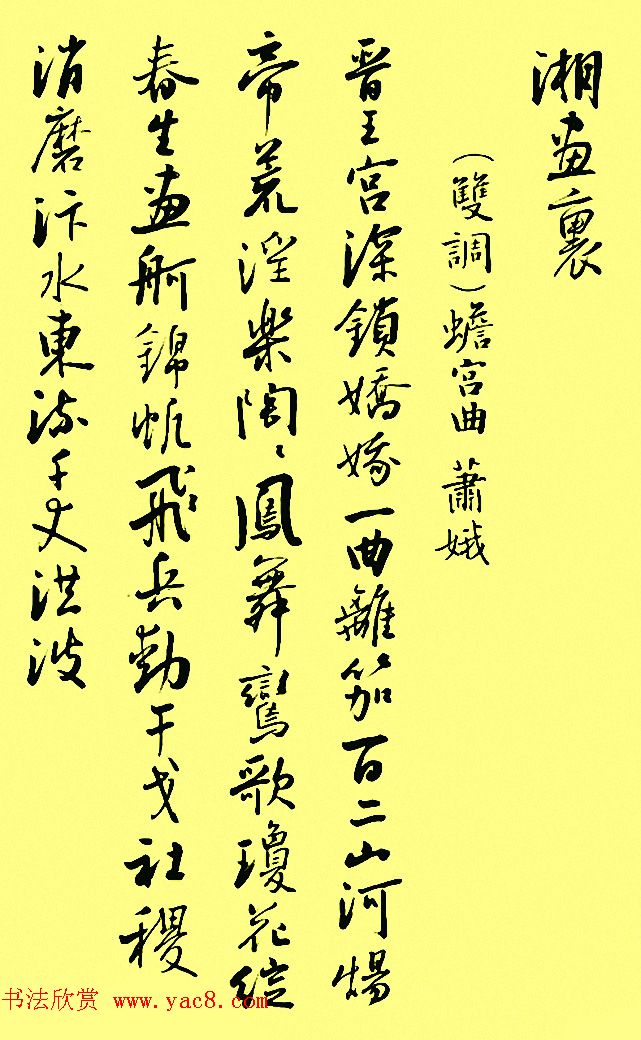 湘畫裏
（雙調）蟾宮曲 蕭娥
晉王宮深鎖嬌娥一曲離笳百二山河煬
帝荒淫樂陶〻鳳舞鸞歌瓊花綻
春生畫舸錦帆飛兵動干戈社稷
消磨汴水東流千丈洪波
书法欣赏 www.yac8.com